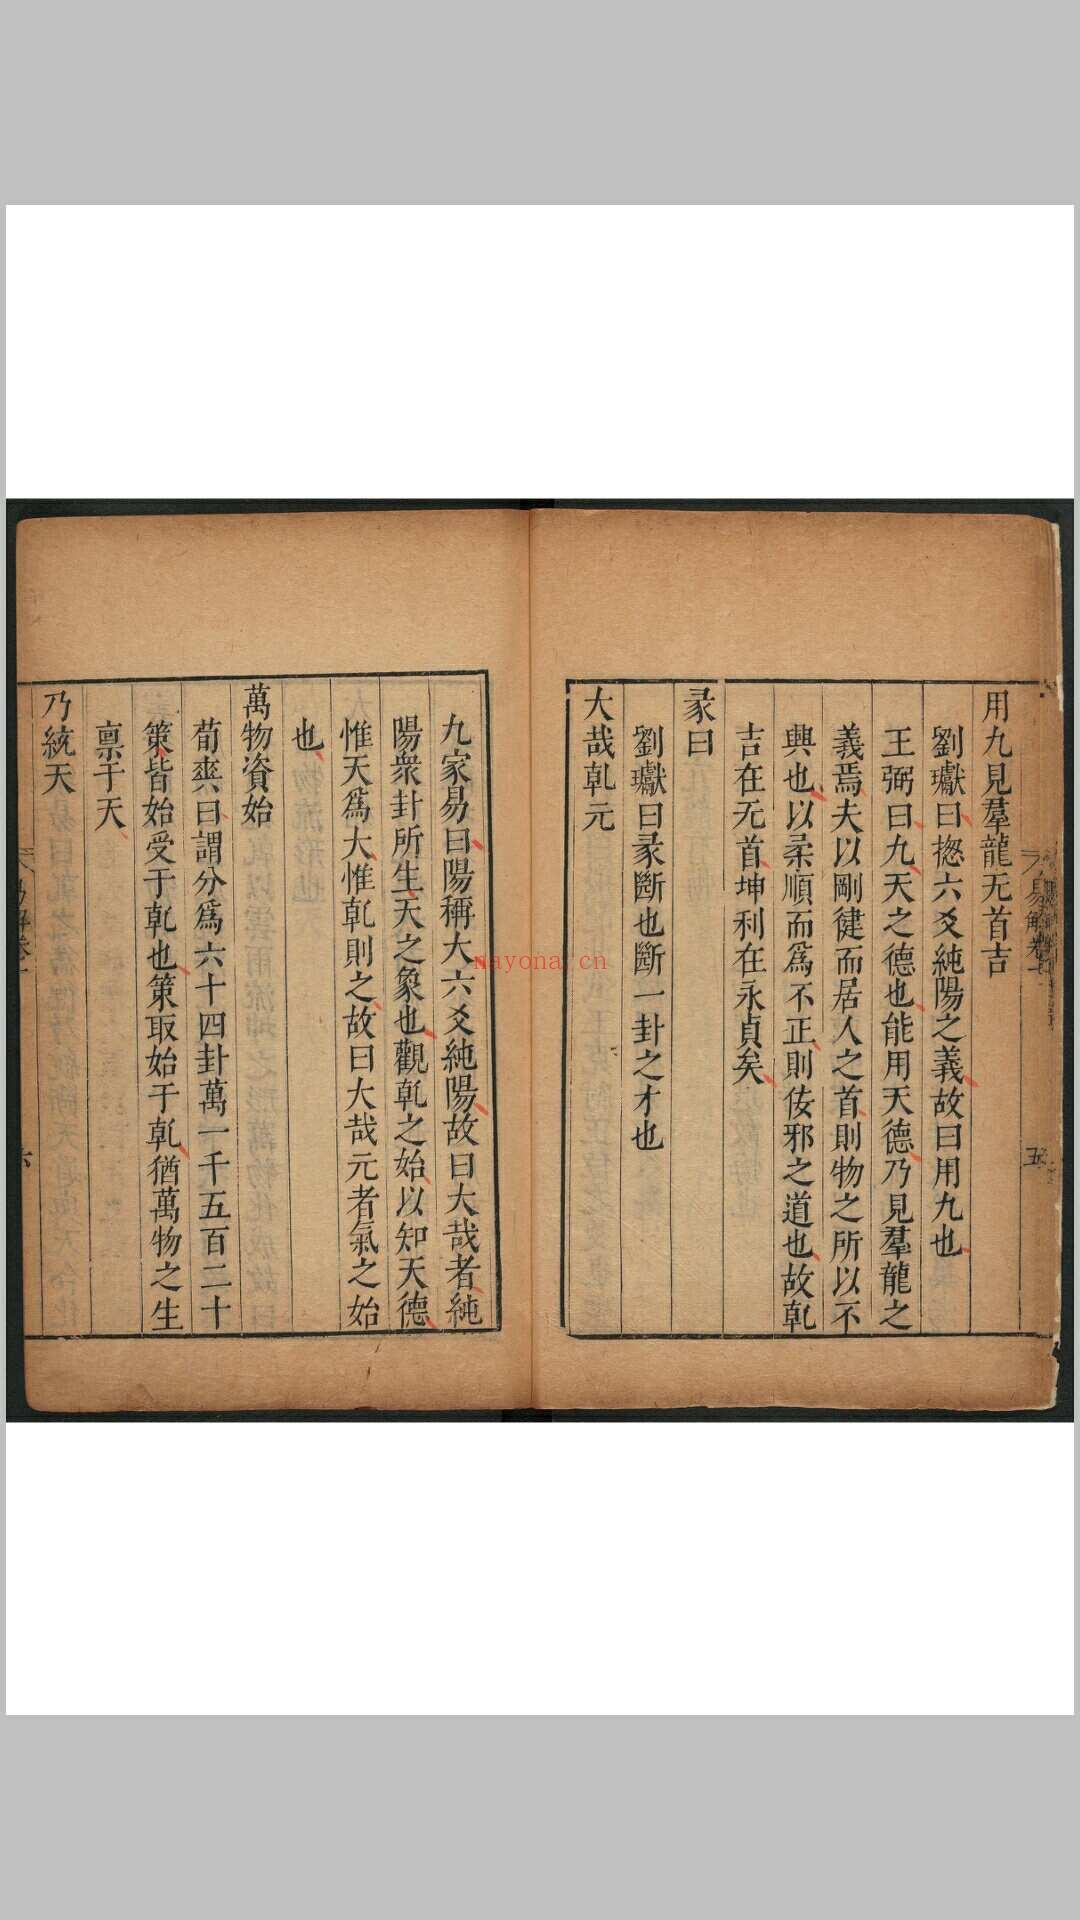 用九見羣龍无首吉
劉瓛曰揔六爻純陽之義故曰用九也
王弼曰九天之德也能用天德乃見羣龍之
義焉夫以剛徤而居人之首則物之所以不
與也以柔順而爲不正則佞邪之道也故乹
吉在无首坤利在永貞矣
彖曰
劉瓛曰彖斷也斷一卦之才也
大哉乹元
易解卷一
五
九家易曰陽稱大六爻純陽故曰大哉者純
陽衆卦所生天之象也觀乹之始以知天德
惟天爲大惟乹則之故曰大哉元者氣之始
也
萬物資始
荀爽曰謂分爲六十四卦萬一千五百二十
策皆始受于乹也策取始于乹猶萬物之生
禀于天
乃統天
nayona.cn